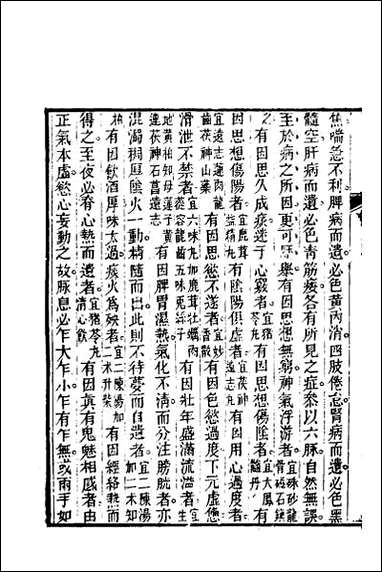 焦喘急不利脾病而遺必色黃肉消四肢倦怠腎病而遺必色黑
髓空肝病而遺必色青筋痿各有所見之症參以六脈自然無誤
至於病之所因更可歷舉有因思想無窮神氣浮游者宜硃砂龍骨磁石鎮
之有因思久成痰迷于心竅者宜猪苓丸有因思想傷陰者宜大鳳髓丹有
因思想傷陽者宜鹿茸益精丸有陰陽俱虛者宜茯神遠志丸有因用心過度者
宜遠志蓮肉龍齒茯神山藥有因思慾不遂者宜妙香散有因色慾過度下元虛憊
滑泄不禁者宜六味丸加鹿茸牡蠣肉蓯蓉龍齒五味兎絲子有因壯年盛滿流溢者宜生
地黃柏知母蓮子遠茯神石菖遠志有因脾胃濕熱氣化不清而分注膀胱者亦
混濁稠厚陰火一動精隨而出此則不待夢而自遺者宜二陳湯加二术知
柏有因飲酒厚味太過痰火為殃者宜二陳湯加二术升柴有因經絡熱而
得之至夜必脊心熱而遺者宜猪苓丸清心飲有因真有鬼魅相感者由
正氣本虛慾心妄動之故脈息必乍大乍小乍有乍無或兩手如